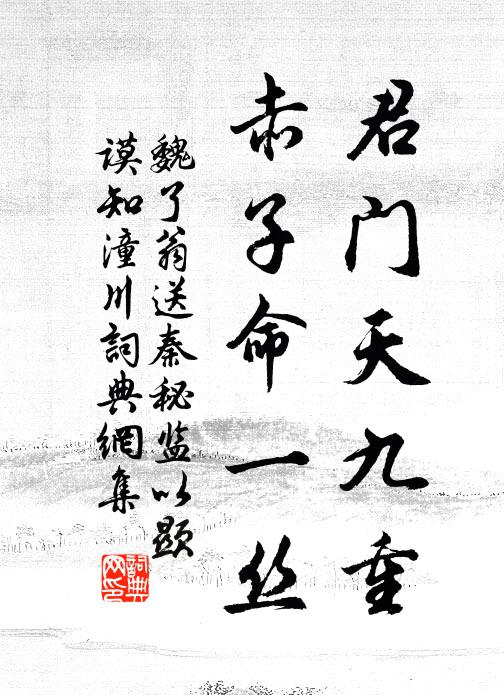 君门天九重
赤子命一丝
魏了翁送秦秘监以显
谟知潼川詞典網集
詞典
网印